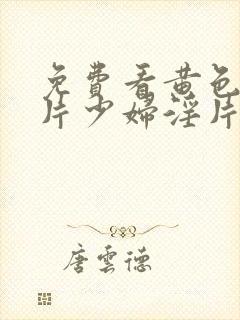 免費看黄色
片少婦淫片
唐雲德